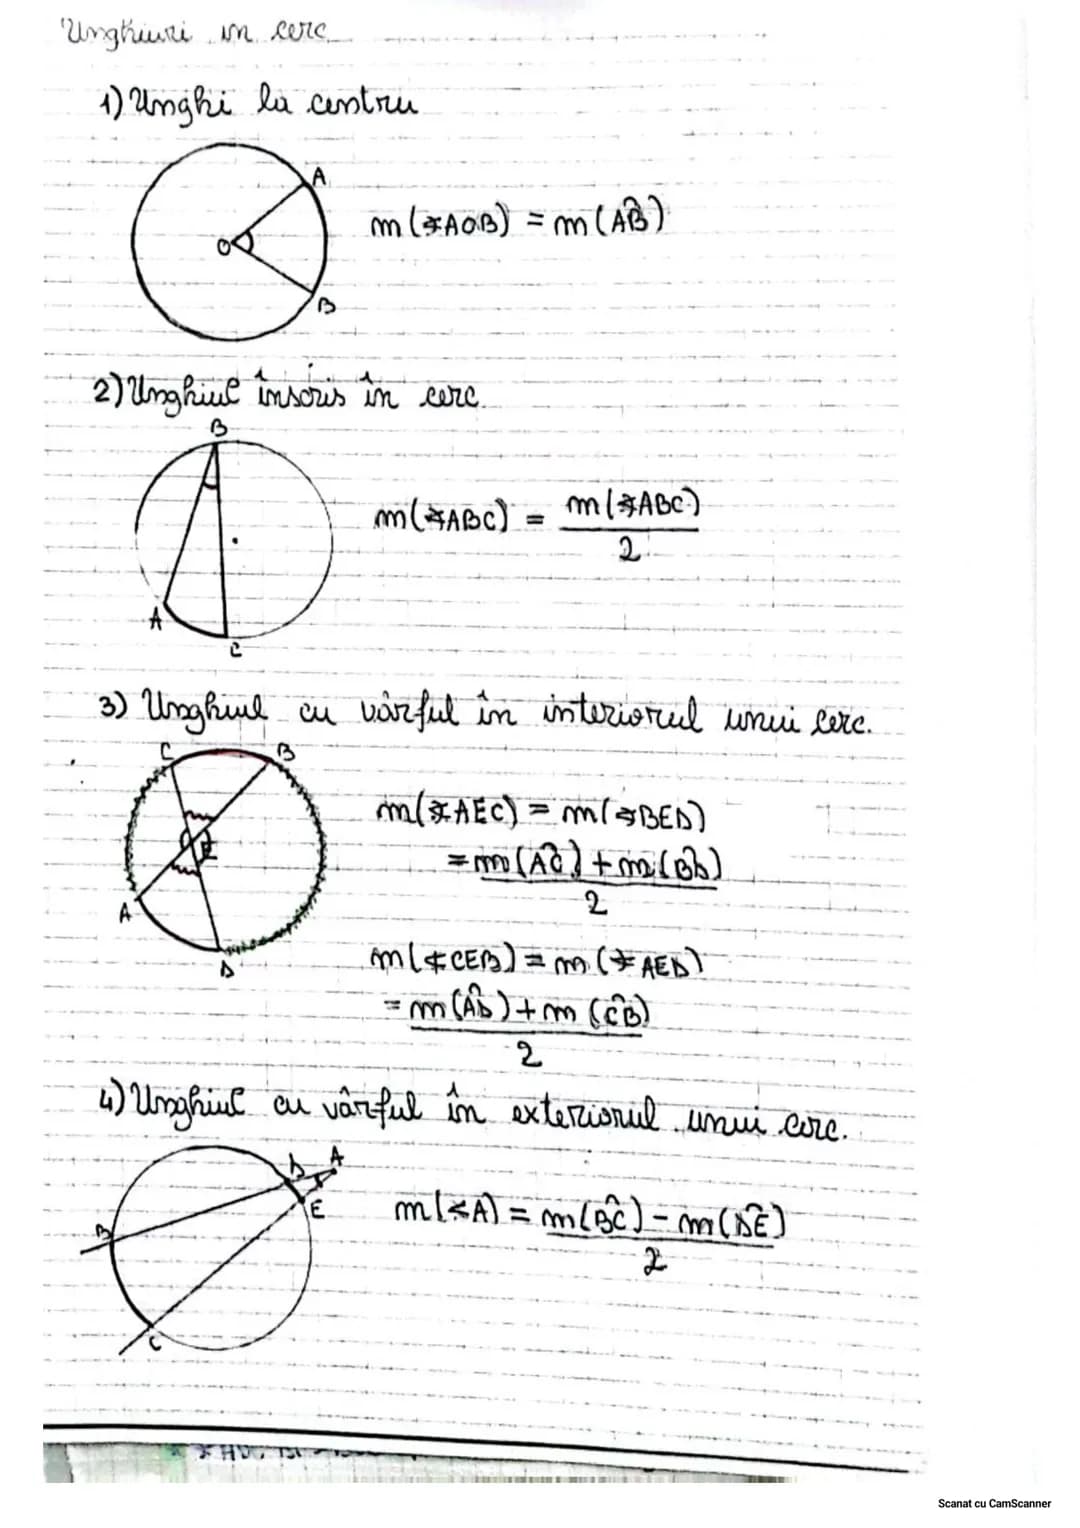 Unghiuri in cerc
1) Unghi la centru
A
O
B
m(∢AOB) = m(A͡B)
2) Unghiul înscris în cerc
B
A
C
m(∢ABC) = m(∢ABC)
2
3) Unghiul cu vârful în interiorul unui cerc.
C
B
E
A
D
m(∢AEC) = m(∢BED)
= m(A͡C) + m(B͡D)
2
m(∢CEB) = m(∢AED)
= m(A͡D) + m(C͡B)
2
4) Unghiul cu vârful în exteriorul unui cerc.
D
A
E
B
C
m(∢A) = m(B͡C) - m(D͡E)
2
Scanat cu CamScanner